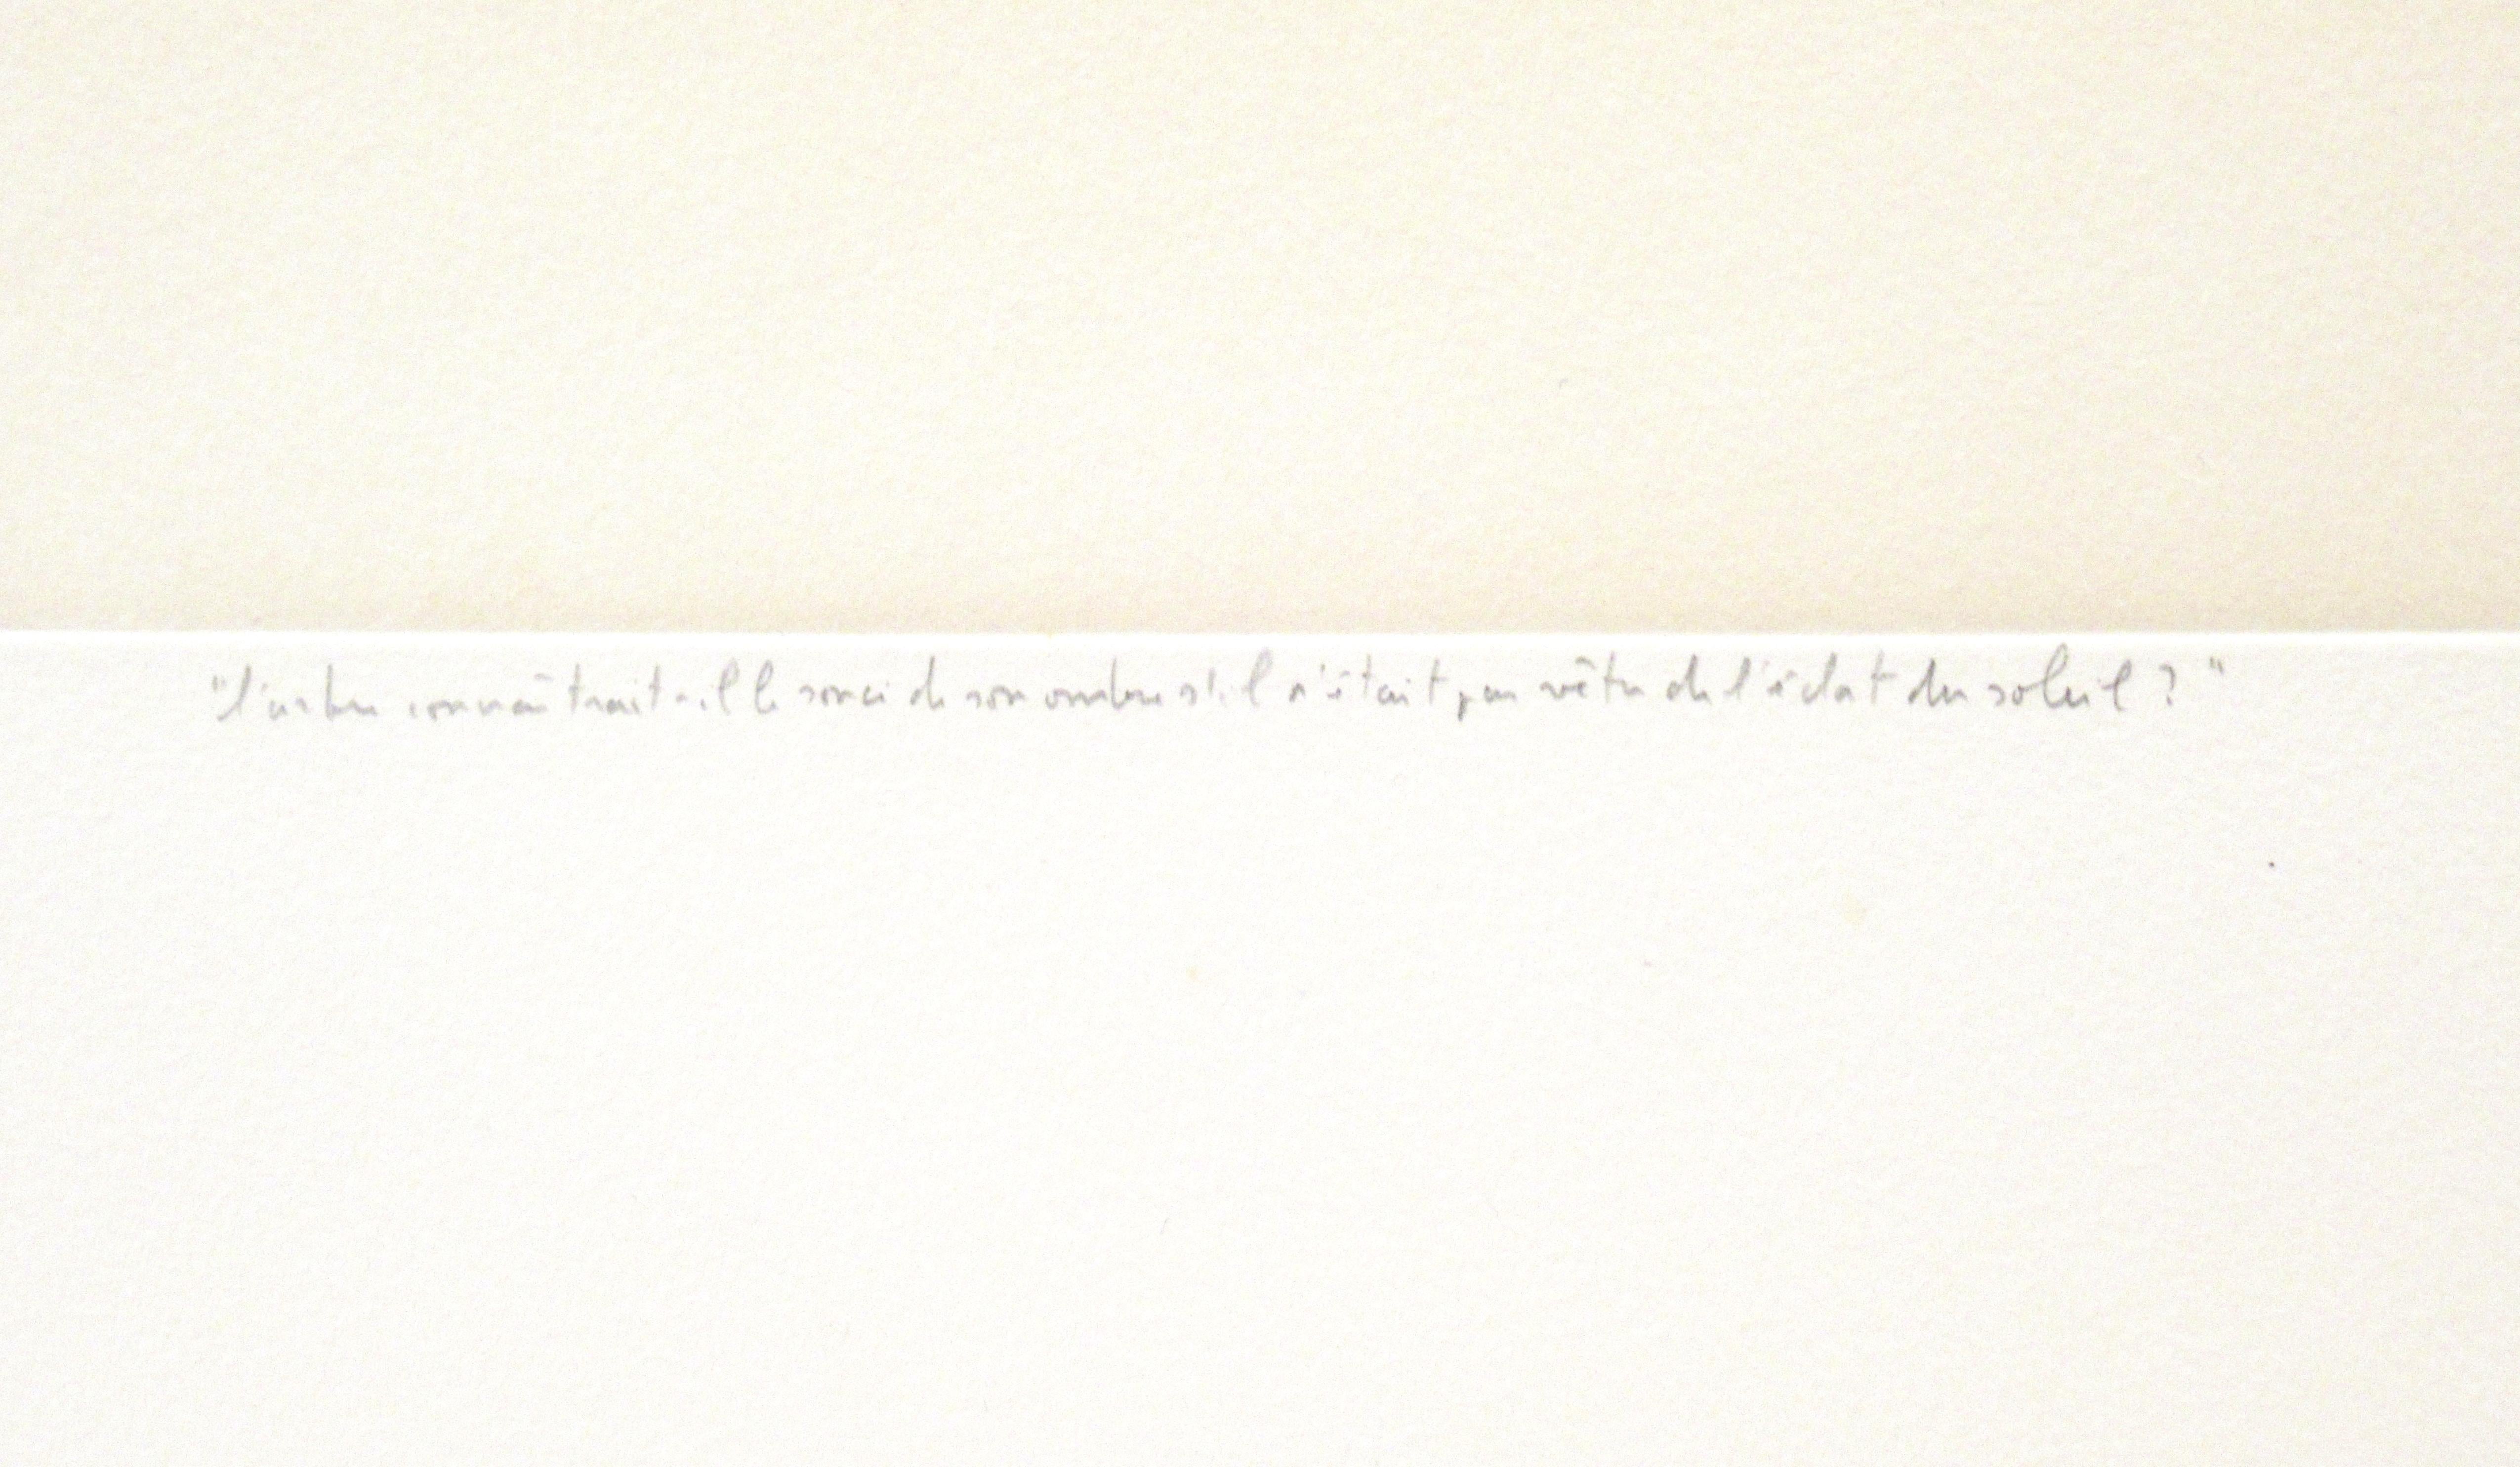 "l'arbre connaîtrait-il le souci de son ombre s'il n'était pas vêtu de l'éclat du soleil ? "